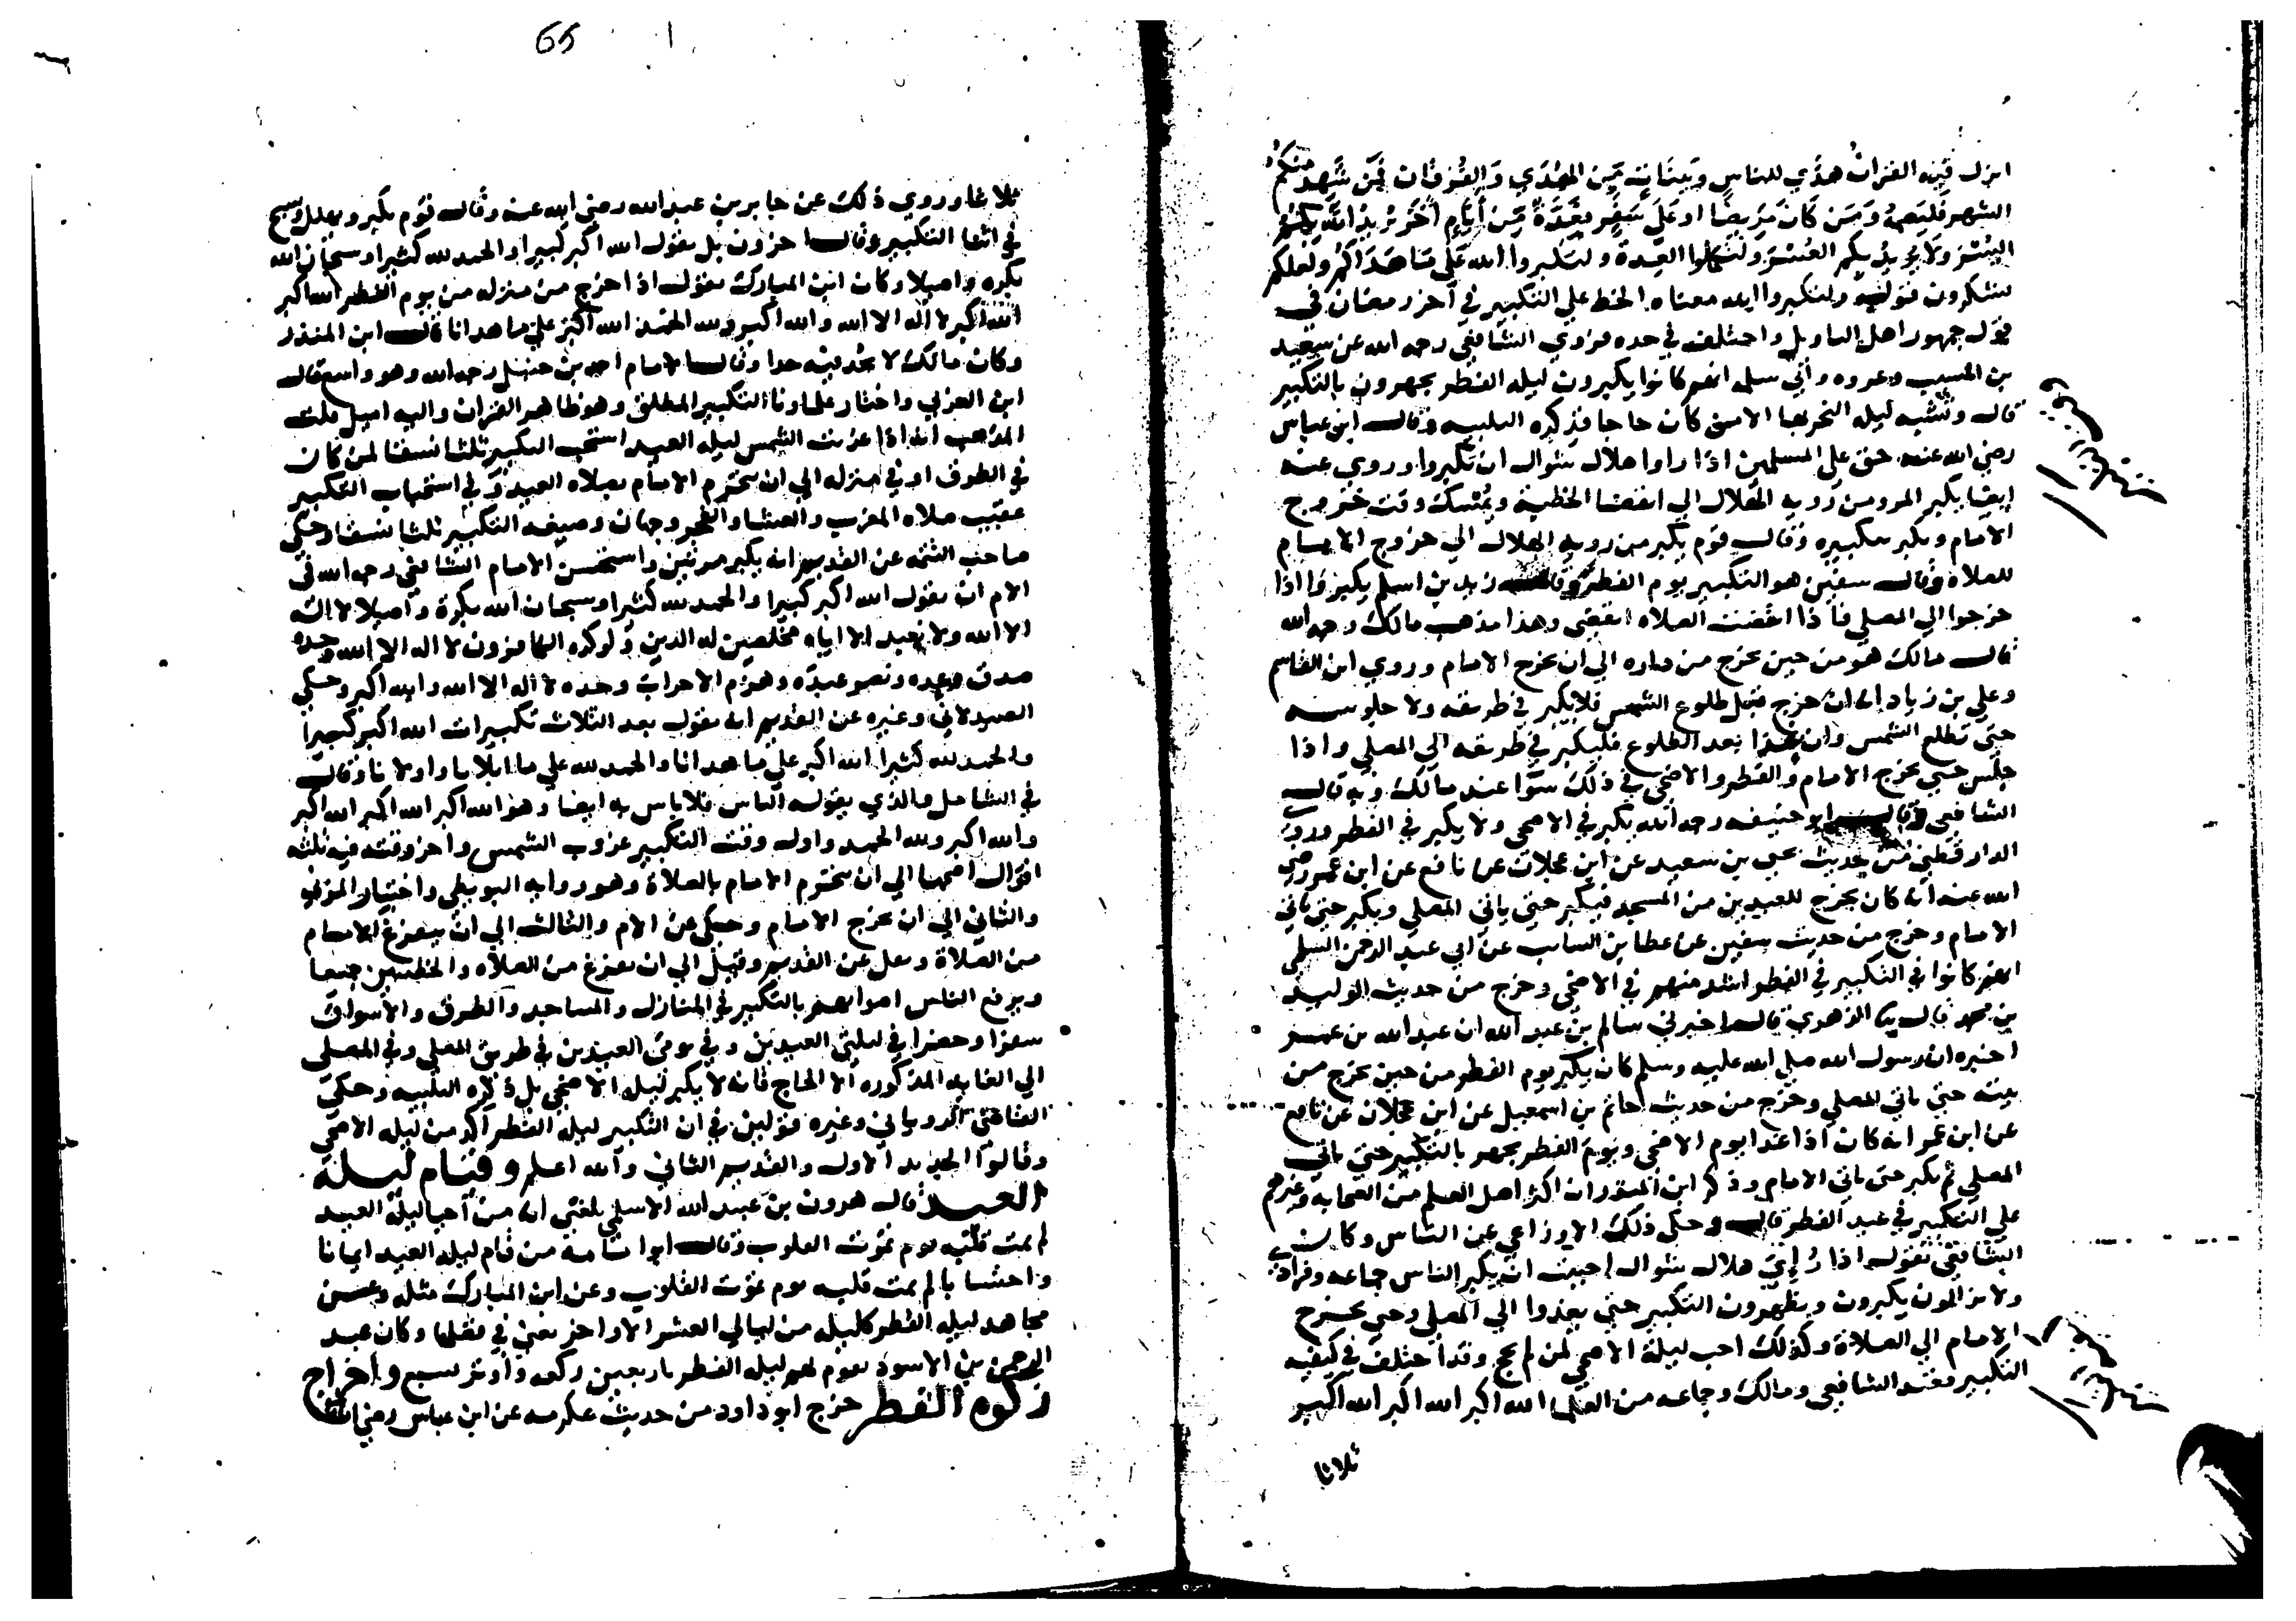 انزل فيه القران هدى للناس وبينات من الهدي والفرقان فمن شهد منكم
الشهر فليصمه ومن كان مريضا او على سفر فعدة من ايام اخر يريد الله بكم
اليسر ولا يريد بكم العسر ولتكملوا العدة ولتكبروا الله على ما هداكم ولعلكم
تشكرون فقوله ولتكبروا الله معناه الحظ علي التكبير في آخر رمضان في
قول جمهور اهل التاويل واختلف في حده فروي الشافعي رحمه الله عن سعيد
بن المسيب وعروه وابي سلمه انهم كانوا يكبرون ليله الفطر يجهرون بالتكبير
قال وتشبه ليله النحر بها الا من كان حاجا فذكره التلبيه وقال ابن عباس
رضي الله عنه حق على المسلمين اذا راوا هلال شوال ان يكبروا وروي عنه
ايضا يكبر المرو من رويه الهلال الي انقضا الخطبة ويمسك وقت خروج
الامام ويكبر بتكبيره وقال قوم يكبر من رويه الهلال الي خروج الامام
للصلاه وقال سفين هو التكبير يوم الفطر وقال زيد بن اسلم يكبروا اذا
خرجوا الي المصلي فاذا انقضت الصلاه انقضى وهذا مذهب مالك رحمه الله
قال مالك هو من حين يخرج من داره الي ان يخرج الامام وروي ابن القاسم
وعلي بن زياد انه ان خرج قبل طلوع الشمس فلا يكبر في طريقه ولا جلوسه
حتى تطلع الشمس وان غدا بعد الطلوع فليكبر في طريقه الي المصلي واذا
جلس حتي يخرج الامام والفطر والاضحى في ذلك سوا عند مالك وبه قال
الشافعي وقال ابو حنيفه رحمه الله يكبر في الاضحى ولا يكبر في الفطر وروي
الدارقطني من حديث يحيى بن سعيد عن ابن عجلان عن نافع عن ابن عمر رضي
الله عنه انه كان يخرج للعيدين من المسجد فيكبر حتى ياتي المصلي ويكبر حتى ياتي
الامام وخرج من حديث سفين عن عطا بن السايب عن ابي عبد الرحمن السلمي
انهم كانوا في التكبير في الفطر اشد منهم في الاضحى وخرج من حديث الوليد
بن محمد قال الزهري قال اخبرني سالم بن عبد الله ان عبد الله بن عمر
اخبره ان رسول الله صلى الله عليه وسلم كان يكبر يوم الفطر من حين يخرج من
بيته حتى ياتي المصلي وخرج من حديث حاتم بن اسمعيل عن ابن عجلان عن نافع
عن ابن عمر انه كان اذا غدا يوم الاضحى ويوم الفطر يجهر بالتكبير حتى ياتي
المصلي ثم يكبر حتى ياتي الامام وذكر ابن المنذر ان اكثر اهل العلم من الصحابه وغيرهم
على التكبير في عيد الفطر قال وحكى ذلك الاوزاعي عن الناس وكان
الشافعي يقول اذا رأي هلال شوال احببت ان يكبر الناس جماعه وفرادي
ولا يزالون يكبرون ويظهرون التكبير حتى يغدوا الي المصلي وحتى يخرج
الامام الي الصلاة وكذلك احب ليلة الاضحى لمن لم يحج وقد اختلف في كيفيه
التكبير فعند الشافعي ومالك وجماعه من العلما الله اكبر الله اكبر الله اكبر
ثلاثا
65
ثلاثا وروي ذلك عن جابر بن عبد الله رضي الله عنه وقال قوم يكبر ويهلل ويسبح
في اثنا التكبير وقال اخرون بل يقول الله اكبر كبيرا والحمد لله كثيرا وسبحان الله
بكره واصيلا وكان ابن المبارك يقول اذا خرج من منزله من يوم الفطر الله اكبر
الله اكبر لا اله الا الله والله اكبر ولله الحمد الله اكبر على ما هدانا قال ابن المنذر
وكان مالك لا يحد فيه حدا وقال الامام احمد بن حنبل رحمه الله وهو واسع قال
ابن العربي واختار علماونا التكبير المطلق وهو ظاهر القران واليه اميل قلت
المذهب انه اذا غربت الشمس ليله العيد استحب التكبير ثلثا نسقا لمن كان
في الطرق او في منزله الي ان يتحرم الامام بصلاه العيد وفي استحباب التكبير
عقيب صلاه المغرب والعشا والفجر وجهان وصيغه التكبير ثلثا نسقا وحكي
صاحب التتمه عن القديم انه يكبر مرتين واستحسن الامام الشافعي رحمه الله في
الام ان يقول الله اكبر كبيرا والحمد لله كثيرا وسبحان الله بكرة واصيلا لا اله
الا الله ولا نعبد الا اياه مخلصين له الدين ولو كره الكافرون لا اله الا الله وحده
صدق وعده ونصر عبده وهزم الاحزاب وحده لا اله الا الله والله اكبر وحكي
الصيدلاني وغيره عن القديم انه يقول بعد الثلاث تكبيرات الله اكبر كبيرا
والحمد لله كثيرا الله اكبر على ما هدانا والحمد لله علي ما ابلانا واولانا وقال
في الشامل والذي يقوله الناس فلا باس به ايضا وهو الله اكبر الله اكبر الله اكبر
والله اكبر ولله الحمد واول وقت التكبير غروب الشمس واخر وقته فيه ثلثه
اقوال اصحها الي ان يتحرم الامام بالصلاة وهو روايه البويطي واختيار المزني
والثاني الي ان يخرج الامام وحكى عن الام والثالث الي ان يفرغ الامام
من الصلاة ونقل عن القديم وقيل الي ان يفرغ من الصلاه والخطبتين جميعا
ويرفع الناس اصواتهم بالتكبير في المنازل والمساجد والطرق والاسواق
سفرا وحضرا في ليلتي العيدين وفي يومي العيدين في طريق المصلي وفي المصلي
الي الغايه المذكوره الا الحاج فانه لا يكبر ليله الاضحى بل ذكره التلبيه وحكى
القاضي الروياني وغيره قولين في ان التكبير ليله الفطر آكد من ليله الاضحى
وقالوا الجديد الاول والقديم الثاني والله اعلم وقيام ليلة
العيد قال هرون بن عبد الله الاسلمي بلغني انه من أحيا ليلة العيد
لم يمت قلبه يوم تموت القلوب وقال ابو امامه من قام ليله العيد ايمانا
واحتسابا لم يمت قلبه يوم تموت القلوب وعن ابن المبارك مثله وعن
مجاهد ليله الفطر كليله من ليالي العشر الاواخر يعني في فضلها وكان عبد
الرحمن بن الاسود يقوم لهم ليله الفطر باربعين ركعه واوتر بسبع واخراج
زكوة الفطر خرج ابو داود من حديث عكرمه عن ابن عباس رضي الله